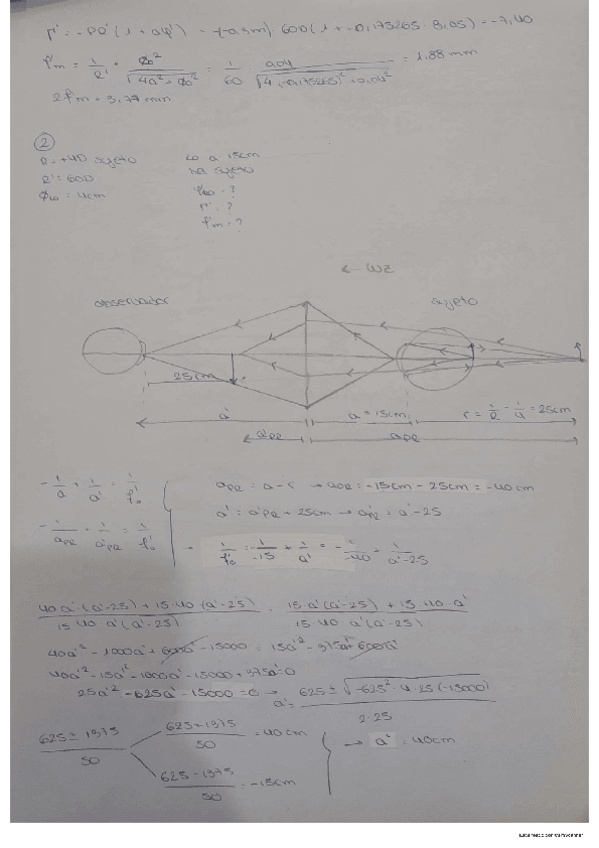 Γ' = -PΩ'(1 + aφ') = -(-0,5m) 600 (1 + -0,175265 · 8,05) = -7,40
ρm = 1/R' · Φ0²/√(4a² + Φ0²) = 1/60 · 0,04/√(4(-0,175265)² + 0,04²) = 1,88 mm
2ρm = 3,77 mm
②
R = +4D sujeto
R' = 60D
ΦLO = 4cm
LO a 15cm
del sujeto
Γ' = ?
ρm = ?
← LUZ
observador
sujeto
25cm
a'
a = 15cm
r = 1/R = 1/4 = 25cm
a'PR
aPR
-1/a + 1/a' = 1/f'0
-1/aPR + 1/a'PR = 1/f'0
aPR = a - r → aPR = -15cm - 25cm = -40cm
a' = a'PR + 25cm → a'PR = a' - 25
→ 1/f'0 = -1/-15 + 1/a' = -1/-40 + 1/a'-25
40a'(a'-25) + 15·40(a'-25) / 15·40 a'(a'-25) = 15a'(a'-25) + 15·40·a' / 15·40 a'(a'-25)
40a'² - 1000a' + 600a' - 15000 = 15a'² - 375a' + 600a'
40a'² - 15a'² - 1000a' - 15000 + 375a' = 0
25a'² - 625a' - 15000 = 0 → a' = 625 ± √(-625² - 4·25(-15000)) / 2·25
625 ± 1375 / 50
625 + 1375 / 50 = 40cm
625 - 1375 / 50 = -15cm
→ a' = 40cm